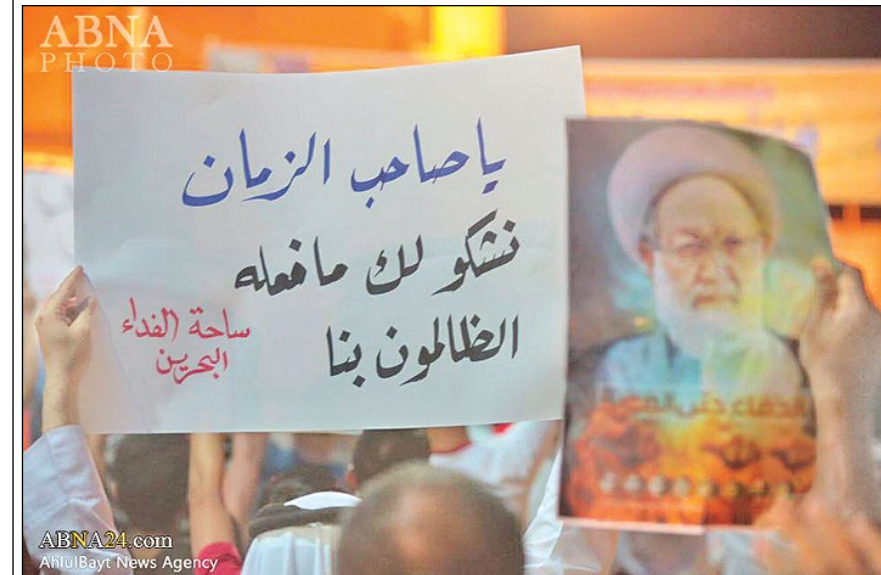 ABNA
PHOTO
يا صاحب الزمان
نشكو لك ما فعله
الظالمون بنا
ساحة الفداء
البحرين
ABNA24.com
AhlulBayt News Agency